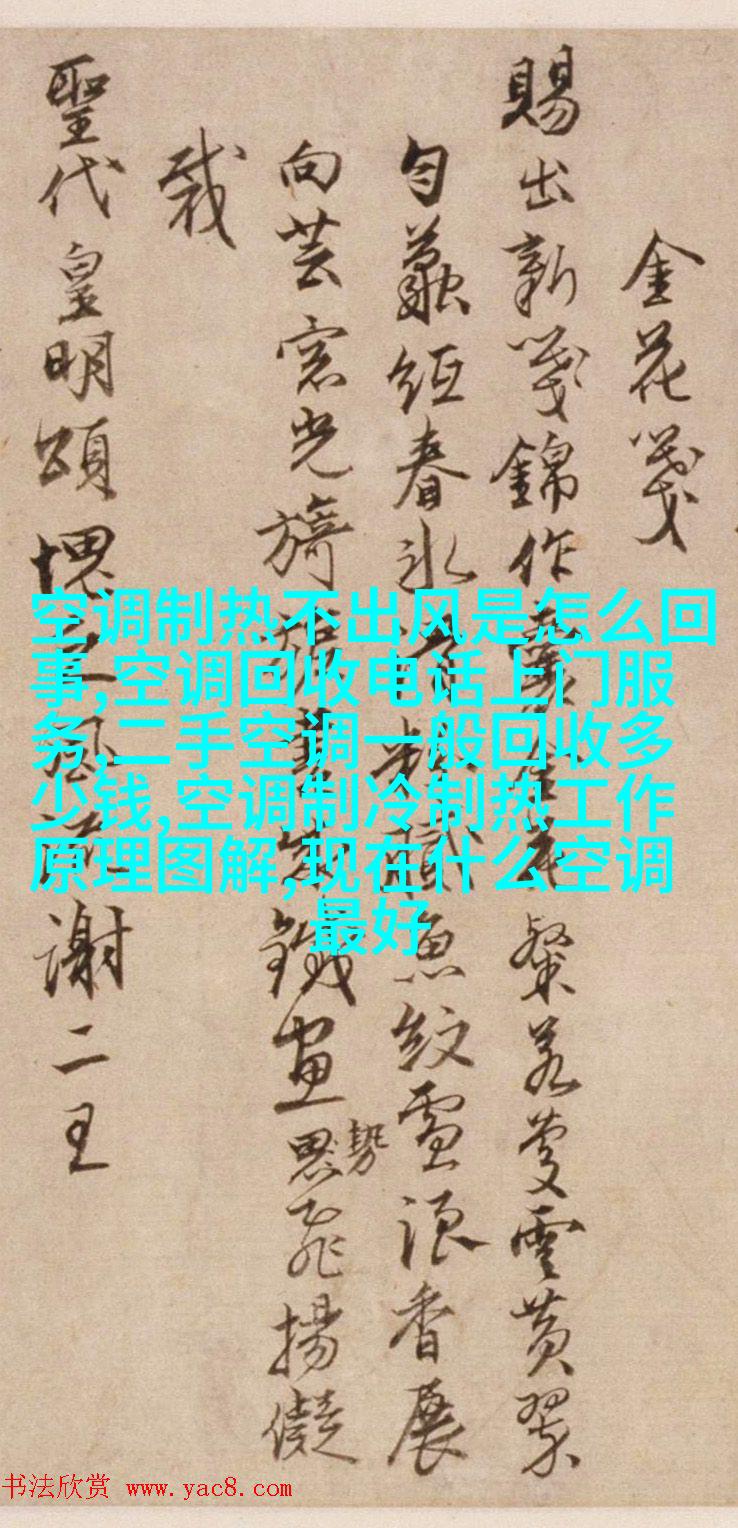 金花箋
賜出新箋錦作 粲若 雲黃翠
春冰 魚紋雪浪香展
向芸窓光旖 鐵畫思飛揚儗
勢
裁
聖代皇明頌愧 謝二王
空调制热不出风是怎么回
事,空调回收电话上门服
务,二手空调一般回收多
少钱,空调制冷制热工作
原理图解,现在什么空调
最好
书法欣赏 www.yac8.com